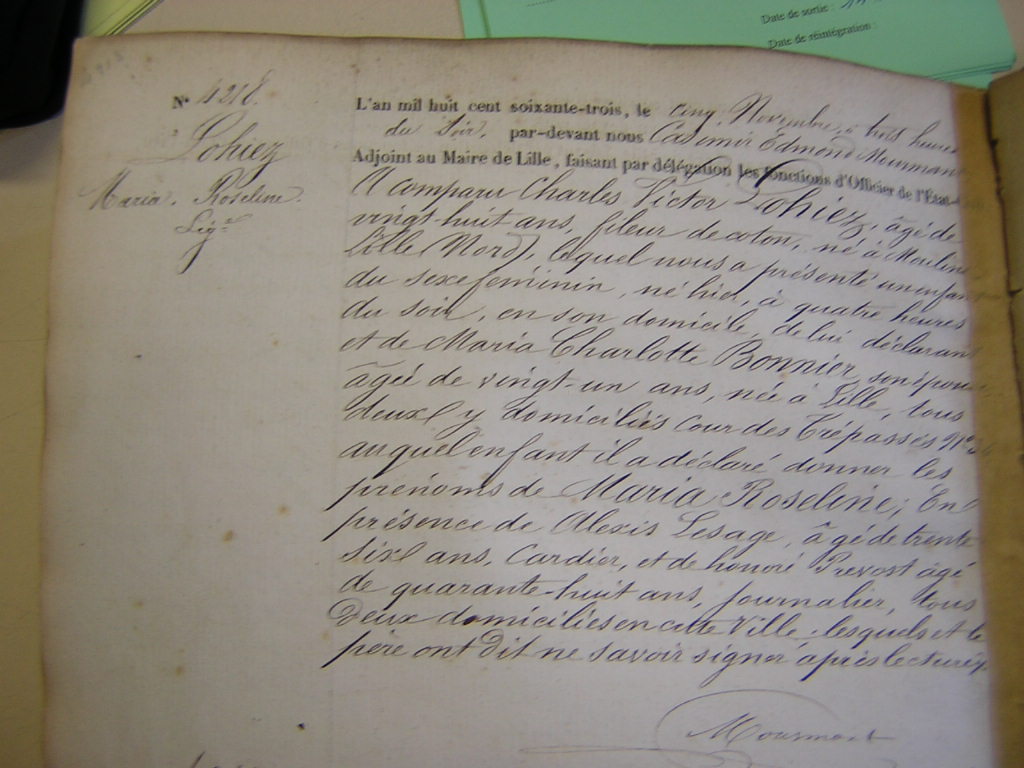 Date de sortie :
Date de réintégration :
N° 4218.
Lohiez
Maria. Roseline.
Lég.re
L'an mil huit cent soixante-trois, le cinq Novembre, à trois heures
du Soir, par-devant nous Casimir Edmond Mourmant
Adjoint au Maire de Lille, faisant par délégation les fonctions d'Officier de l'État-
A comparu Charles Victor Lohiez, âgé de
vingt-huit ans, fileur de coton, né à Moulins
Lille (Nord), lequel nous a présenté un enfant
du sexe féminin, né hier, à quatre heures
du soir, en son domicile, de lui déclarant
et de Maria Charlotte Bonnier, son épouse
âgée de vingt-un ans, née à Lille, tous
deux y domiciliés Cour des Trépassés N°
auquel enfant il a déclaré donner les
prénoms de Maria Roseline; En
présence de Alexis Lesage, âgé de trente
six ans, Cardier, et de honoré Prevost âgé
de quarante-huit ans, journalier, tous
Deux domiciliés en cette Ville, lesquels et le
père ont Dit ne savoir signer après lecture
Mourmant